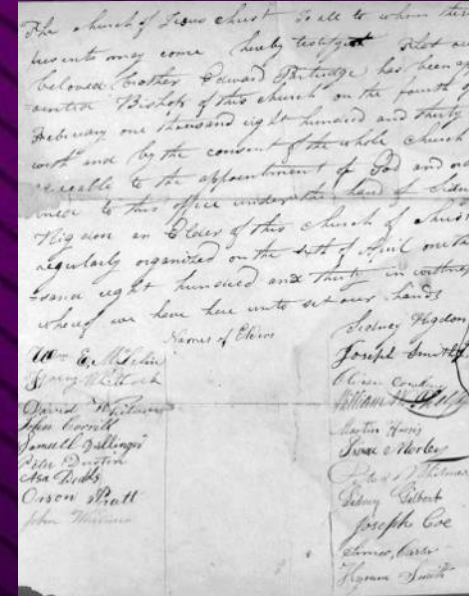 The church of Jesus christ To all to whom these
presents may come hereby testifyeth that our
beloved brother Edward Partridge has been app
ointed Bishop of this church on the fourth of
February one thousand eight hundred and thirty
with and by the consent of the whole church
agreeable to the appointment of God and ord
ained to this office under the hand of Sidney
Rigdon an Elder of this church of christ
regularly organized on the of April one thou
-sand eight hundred and thirty in witness
whereof we have here unto set our hands
Names of Elders
Wm E, McLelin
Whitlock
David Whitmer
John Corrill
Samuel
Peter Dustin
Asa Dodds
Orson Pratt
John Whitmer
Sidney Rigdon
Joseph Smith
Oliver Cowdery
William W. Phelps
Martin Harris
Isaac Morley
Peter Whitmer
Sidney Gilbert
Joseph Coe
Simeon Carter
Hyrum Smith